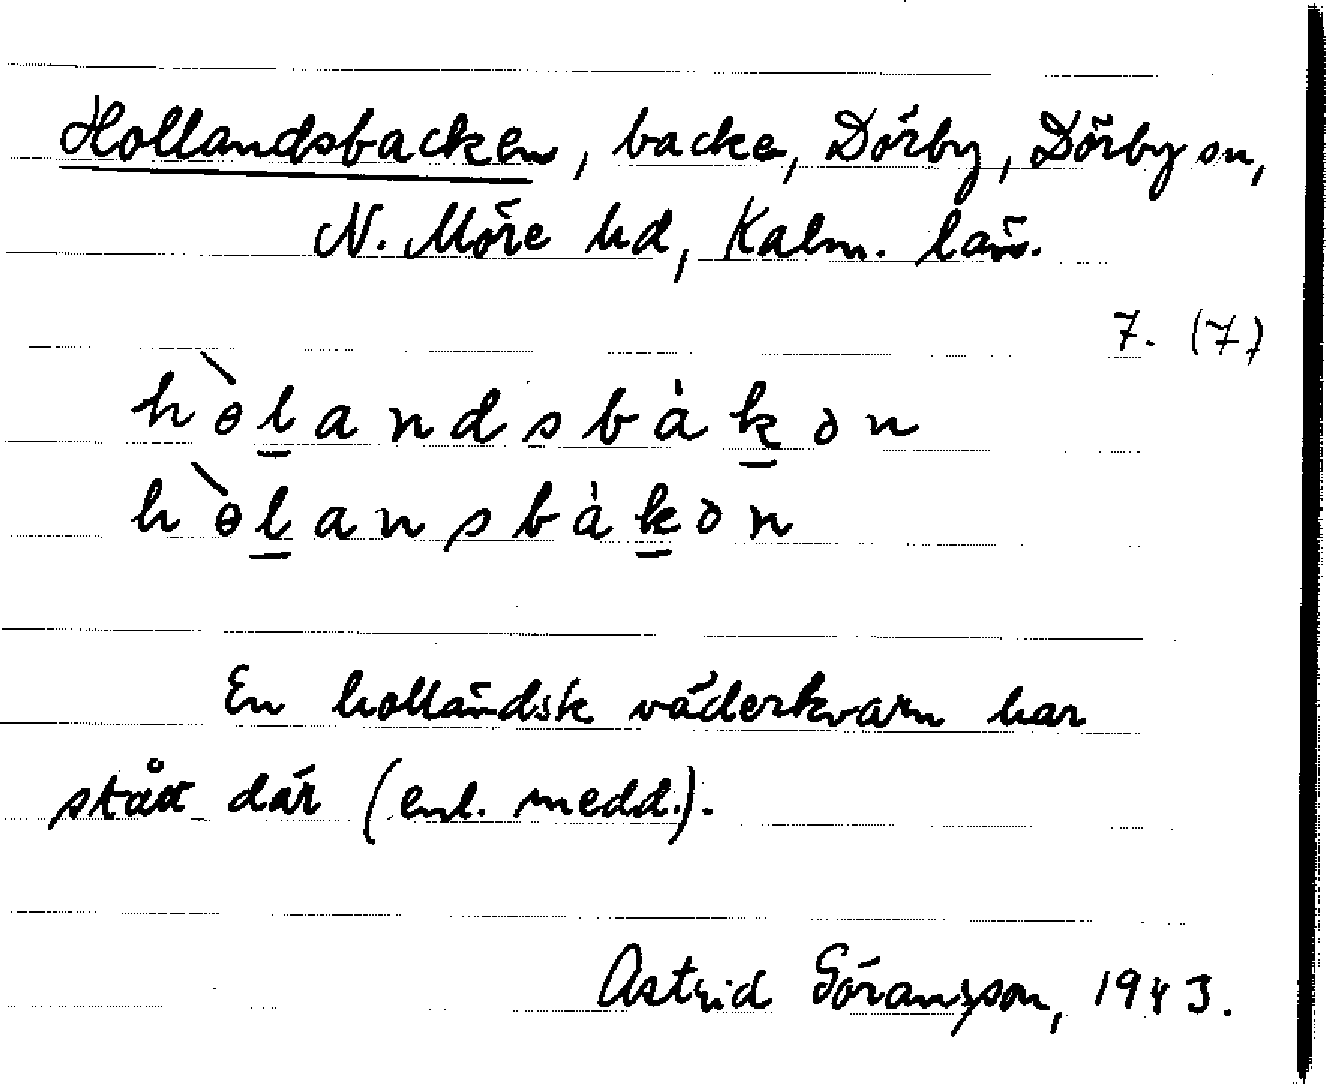 Hollandsbacken, backe, Dörby, Dörby sn,
N. Möre hd, Kalm. län.
7. (7)
hɵ̀landsbàkən
hɵ̀lansbàkən
En holländsk väderkvarn har
stått där (enl. medd.).
Astrid Göransson, 1943.